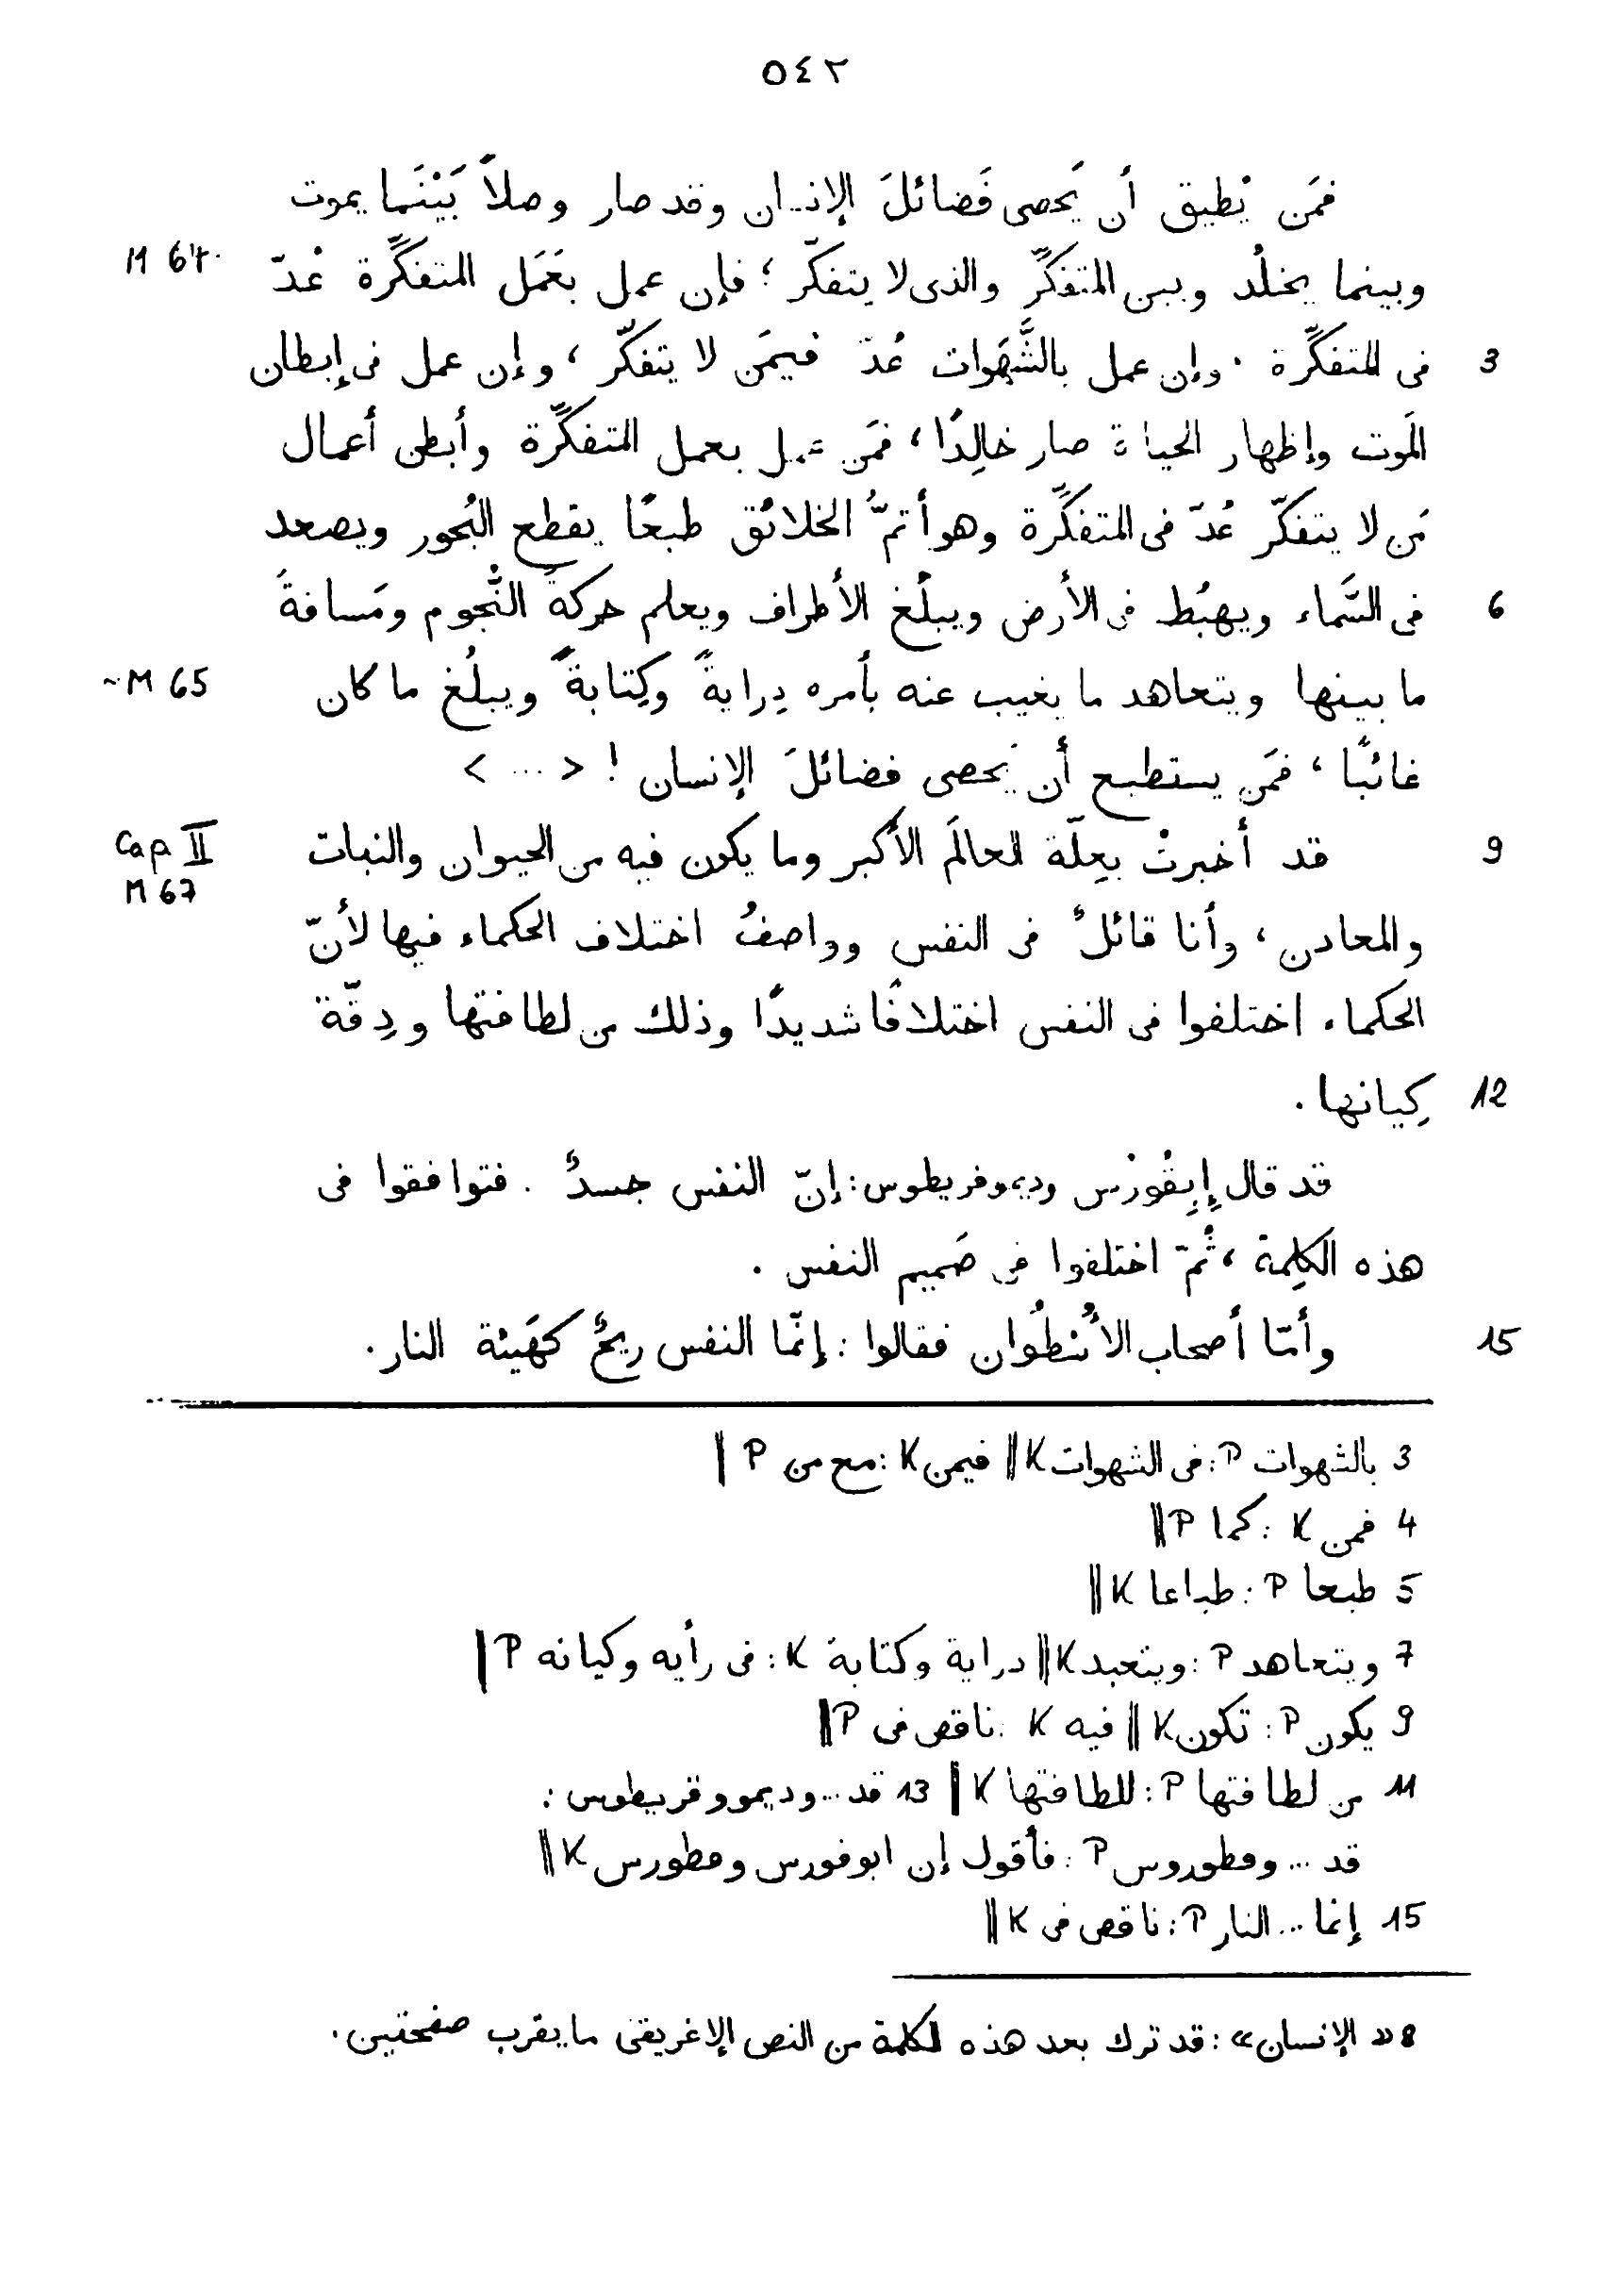 ٥٤٢
فمَن يُطيق أن يَحصى فَضائلَ الإنسان وقد صار وصلاً بَيْنَما يموت
M 64
وبينما يخلُد وبين المتفكِّر والذى لا يتفكّر ؛ فإن عمل بعَمَل المتفكِّرة عُدّ
3 فى المتفكِّرة . وإن عمل بالشَّهَوات عُدّ فيمَن لا يتفكّر ، وإن عمل فى إبطان
المَوت وإظهار الحياة صار خالِدًا ، فمَن عمل بعمل المتفكِّرة وأبطى أعمال
مَن لا يتفكّر عُدّ فى المتفكِّرة وهو أتمُّ الخلائق طبعًا يقطع البُحور ويصعد
6 فى السَّماء ويهبُط فى الأرض ويبلُغ الأطراف ويعلم حركةَ النُّجوم ومَسافةَ
M 65
ما بينها ويتعاهد ما يغيب عنه بأمره دِرايةً وكِتابةً ويبلُغ ما كان
غائبًا ، فمَن يستطيع أن يَحصى فضائلَ الإنسان ! < ... >
9 قد أخبرتُ بعِلّة العالَم الأكبر وما يكون فيه من الحيوان والنبات
Cap II
M 67
والمعادن ، وأنا قائلٌ فى النفس وواصفُ اختلاف الحكماء فيها لأنّ
الحكماء اختلفوا فى النفس اختلافًا شديدًا وذلك من لطافتها ودِقّة
12 كِيانها .
قد قال إِبِقُورُس وديموقريطوس : إنّ النفس جسدٌ . فتوافقوا فى
هذه الكلِمة ، ثُمّ اختلفوا فى صَميم النفس .
15 وأمّا أصحاب الأُسْطُوان فقالوا : إنّما النفس ريحٌ كهَيئة النار .
3 بالشهوات P : فى الشهوات K || فيمن K : مع من P ||
4 فمن K : كما P ||
5 طبعا P : طباعا K ||
7 ويتعاهد P : ويتعبد K || دراية وكتابة K : فى رأيه وكيانه P ||
9 يكون P : تكون K || فيه K : ناقص فى P ||
11 من لطافتها P : للطافتها K || 13 قد ... وديموقريطوس :
قد ... ومطوروس P : فأقول إن ابوفورس ومطورس K ||
15 إنما ... النار P : ناقص فى K ||
8 « الإنسان » : قد ترك بعد هذه الكلمة من النص الإغريقى ما يقرب صفحتين .